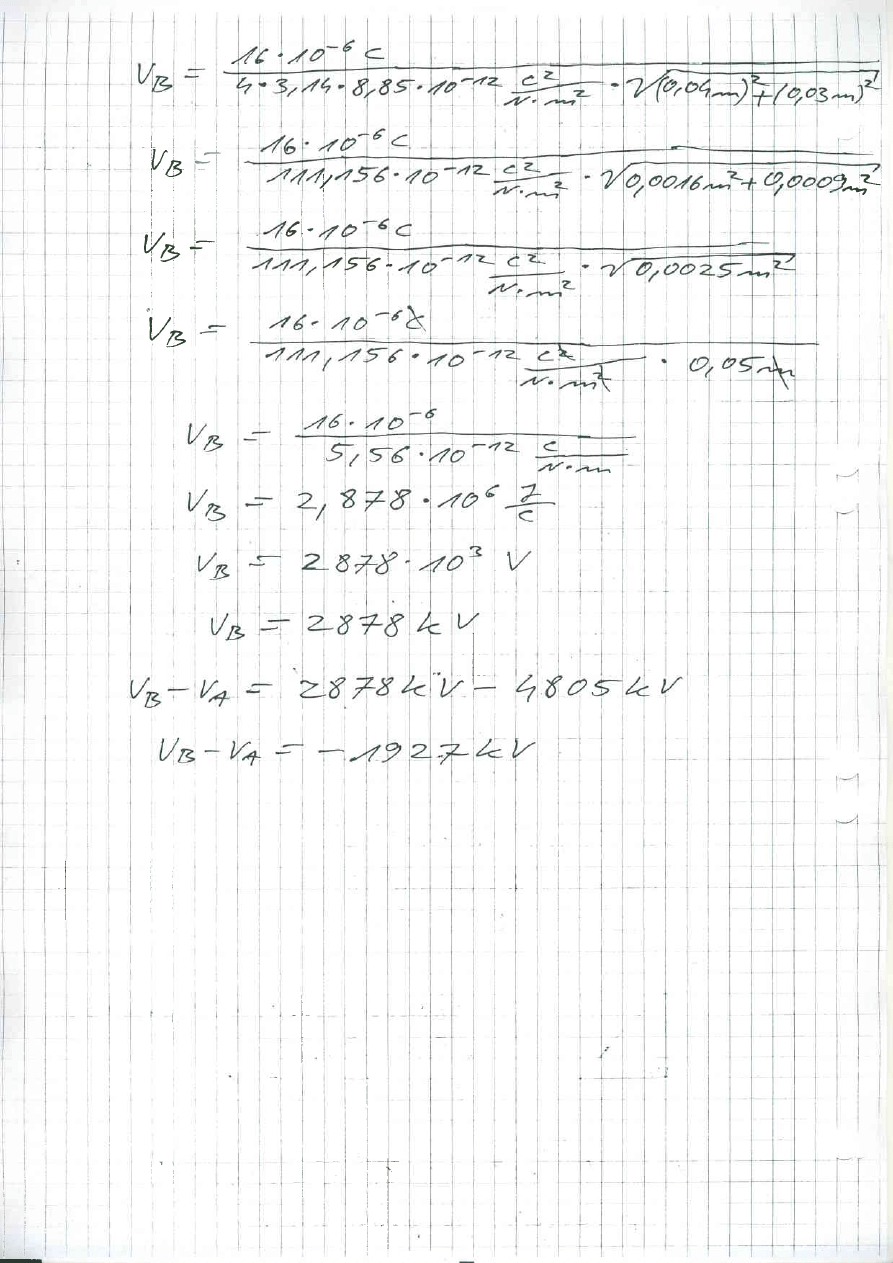 V_B = 16·10⁻⁶ C / (4·3,14·8,85·10⁻¹² C²/(N·m²) · √((0,04m)²+(0,03m)²))
V_B = 16·10⁻⁶ C / (111,156·10⁻¹² C²/(N·m²) · √(0,0016m²+0,0009m²))
V_B = 16·10⁻⁶ C / (111,156·10⁻¹² C²/(N·m²) · √(0,0025m²))
V_B = 16·10⁻⁶ C / (111,156·10⁻¹² C²/(N·m²) · 0,05m)
V_B = 16·10⁻⁶ / (5,56·10⁻¹² C/(N·m))
V_B = 2,878·10⁶ J/C
V_B = 2878·10³ V
V_B = 2878kV
V_B − V_A = 2878kV − 4805kV
V_B − V_A = −1927kV